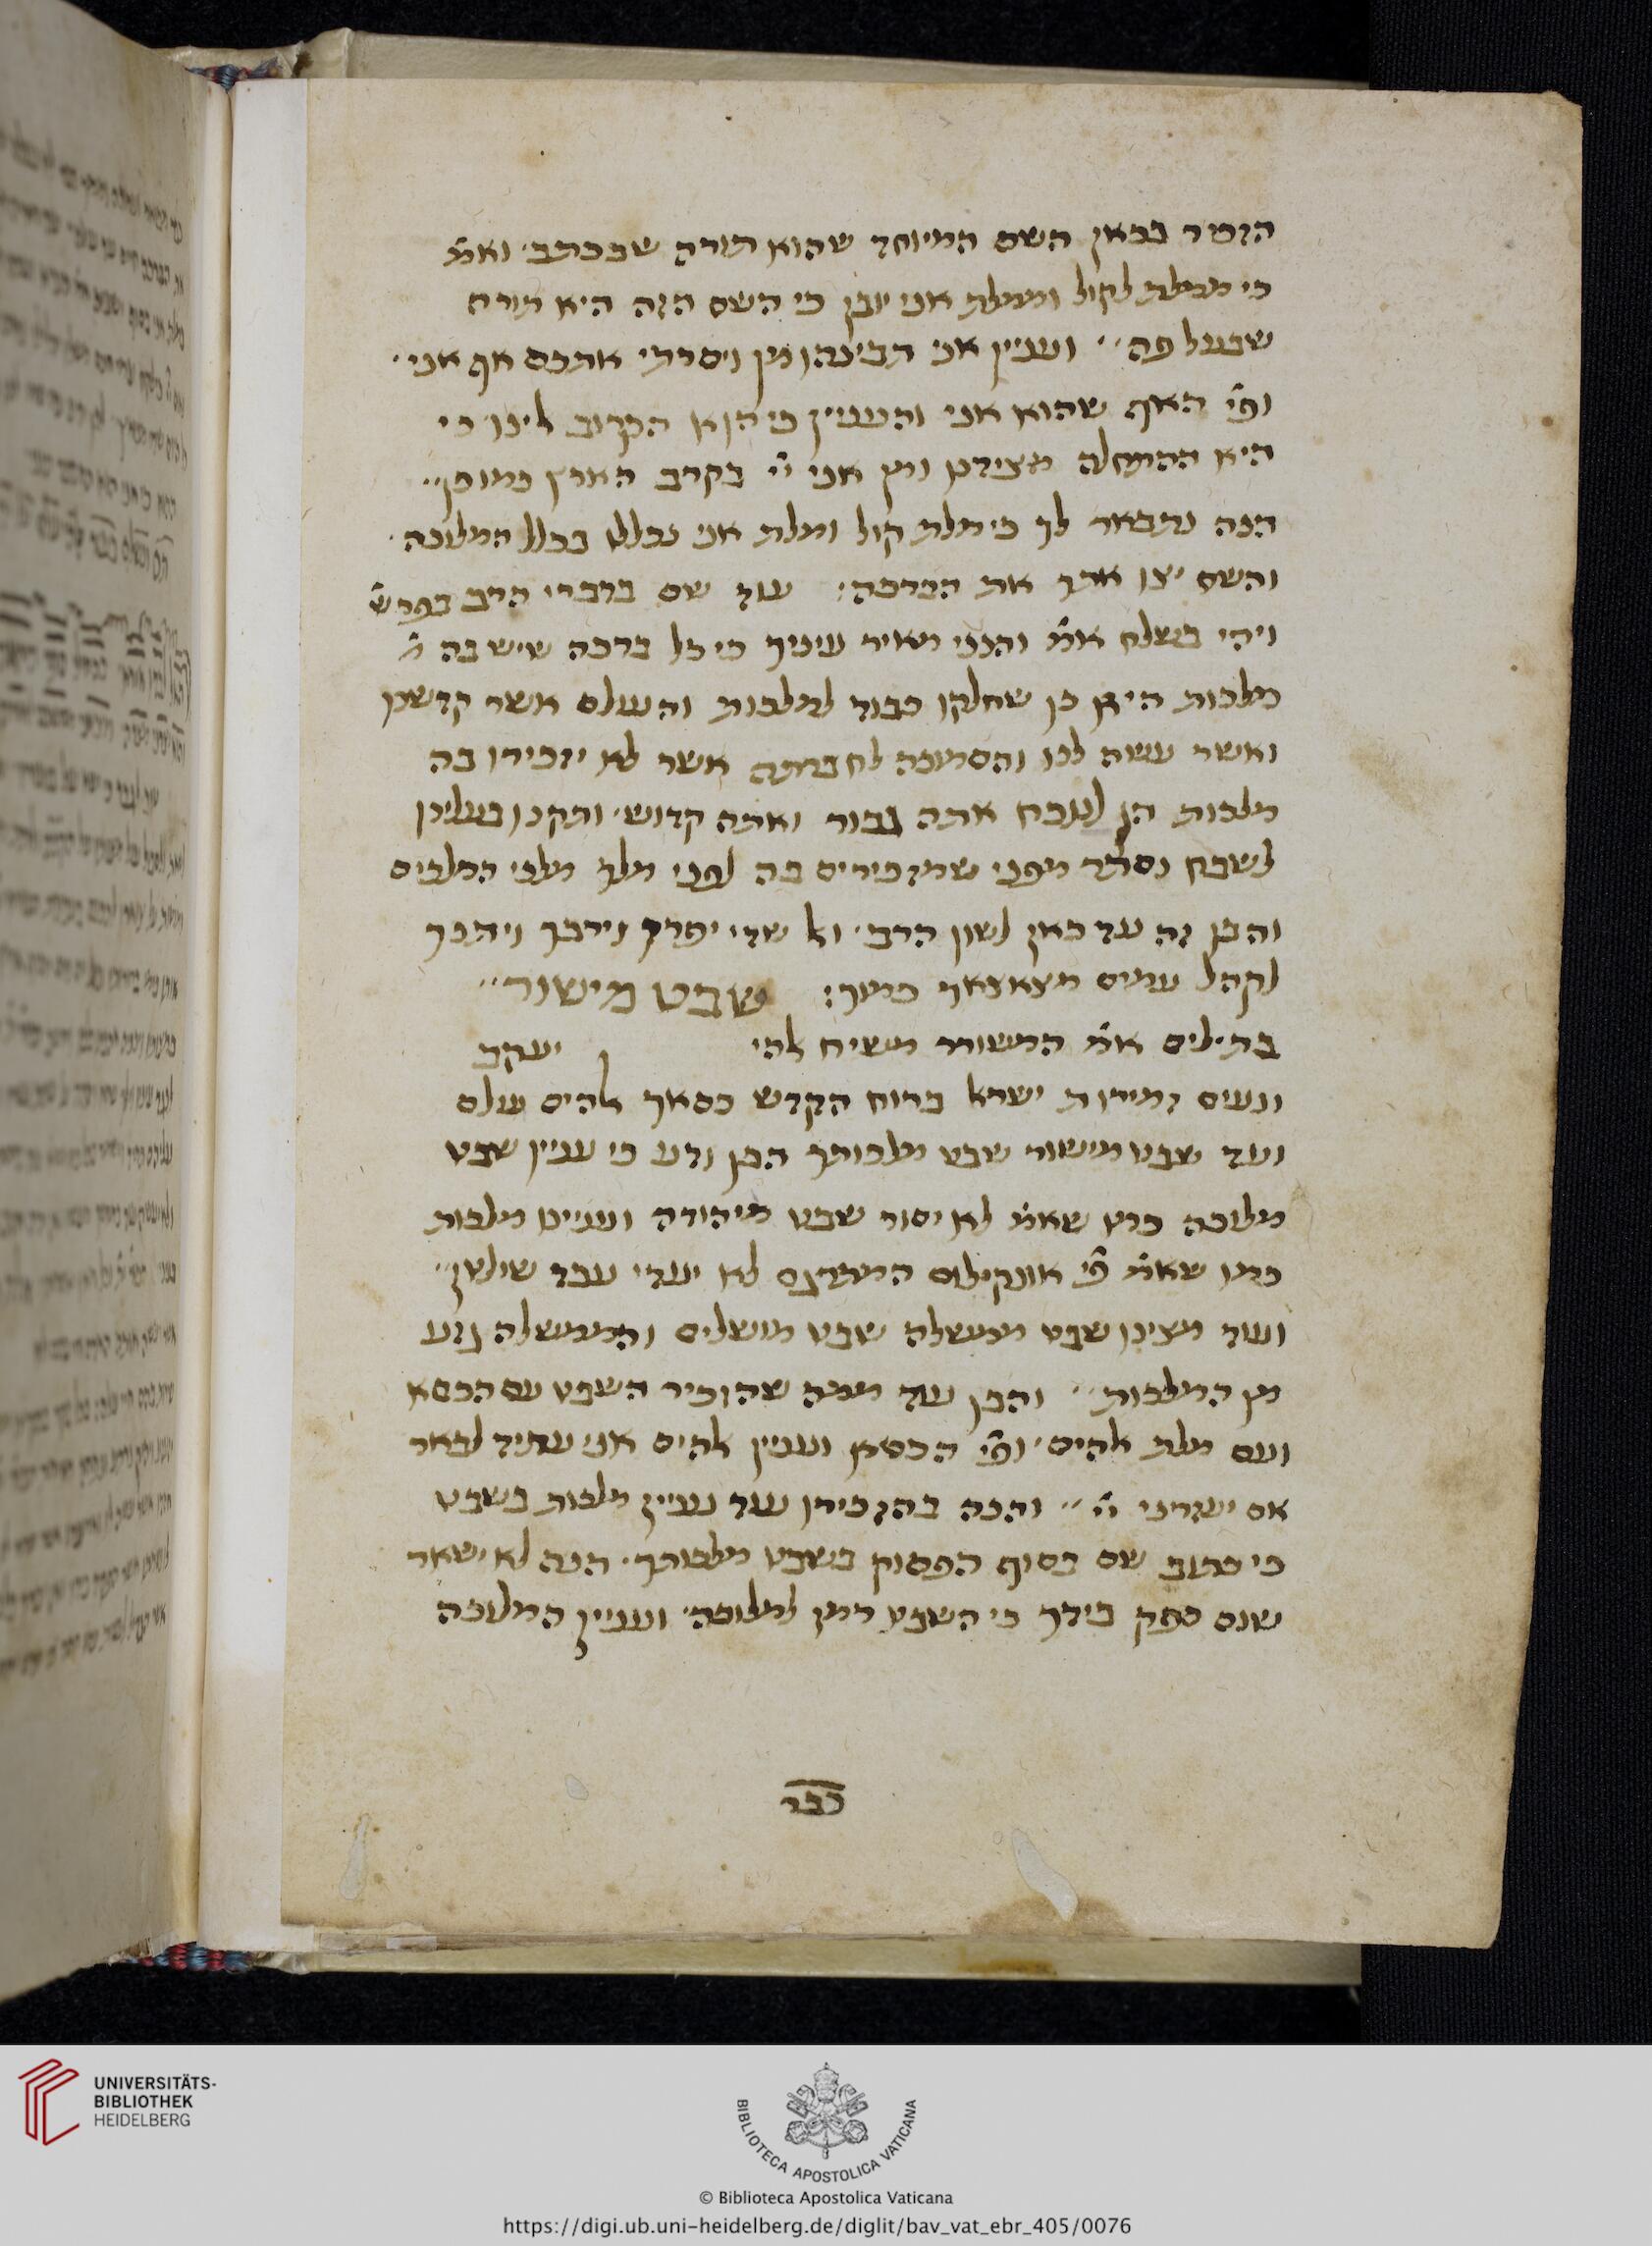 הזכיר בכאן השם המיוחד שהוא תורה שבכתב׳ ואמ̃
כי ממלת לקול וממלת אני יובן כי השם הזה היא תורה
שבעל פה׳׳ ועניין אני תבינהו מן ויסרתי אתכם אף אני׳
ופי̃ האף שהוא אני והעניין כי הוא הקרוב אלינו כי
היא ההתחלה מצידנו וכן אני י̃י בקרב הארץ כמו כן׳׳
הנה נתבאר לך כי מלת קול ומלת אני נכללו בכלל המלוכה׳
והשם יצו אתך את הברכה׃ עוד שם בדברי הרב בפרש̃
ויהי בשלח אמ̃ והנני מאיר עיניך כי כל ברכה שיש בה
מלכות היא כן שחלקו כבוד למלכות והעולם אשר קדשנו
ואשר עשה לנו והסמוכה לחברתה אשר לא יזכירו בה
מלכות הן לנוכח אתה גבור ואתה קדוש׳ ותקנו בעלינו
לשבח נסתר מפני שמזכירים בה לפני מלך מלכי המלכים
והבן זה עד כאן לשון הרב׳ ואל שדי יפרך וירבך ויהפך
לקהל עמים מצאצאך כרצך׃ שבט מישור׳׳
בתילים אמ̃ המשורר משיח אלהי יעקב
ונעים זמירות ישראל ברוח הקדש כסאך אלהים עולם
ועד שבט מישור שבט מלכותך הבן ודע כי עניין שבט
מלוכה כדע שאמ̃ לא יסור שבט מיהודה ועניינו מלכות
כמו שאמ̃ פי̃ אונקלוס המתרגם לא יעדי עבד שולטן׳׳
ועוד מצינו שבט ממשלה שבט מושלים והממשלה נודע
מן המלכות׳׳ והבן עוד ממה שהזכיר השבט עם הכסא
ועם מלת אלהים׳ ופי̃ הכסא ועניין אלהים אני עתיד לבאר
אם יעזרני ה̃׳׳ והנה בהזכירו עוד עניין מלכות בשבט
כי כתוב שם בסוף הפסוק בשבט מלכותך׳ הנה לא ישאר
שום ספק בידך כי השבט רמז למלוכה׳ ועניין המלוכה
כבר
UNIVERSITÄTS-
BIBLIOTHEK
HEIDELBERG
BIBLIOTECA APOSTOLICA VATICANA
© Biblioteca Apostolica Vaticana
https://digi.ub.uni-heidelberg.de/diglit/bav_vat_ebr_405/0076